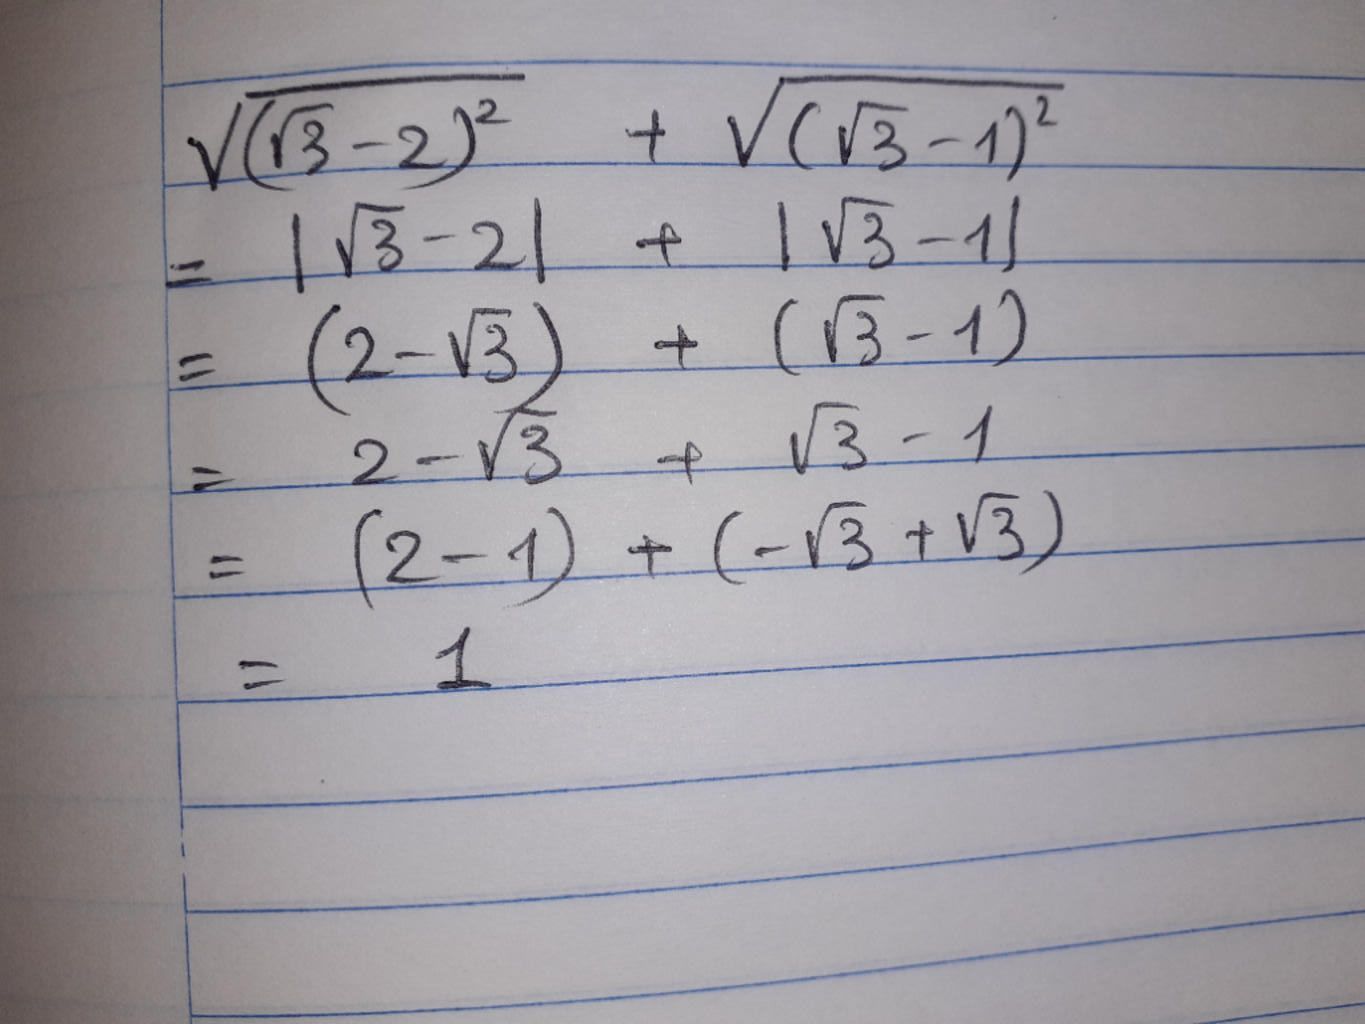 √(√3-2)² + √(√3-1)²
= |√3-2| + |√3-1|
= (2-√3) + (√3-1)
= 2-√3 + √3-1
= (2-1) + (-√3+√3)
= 1